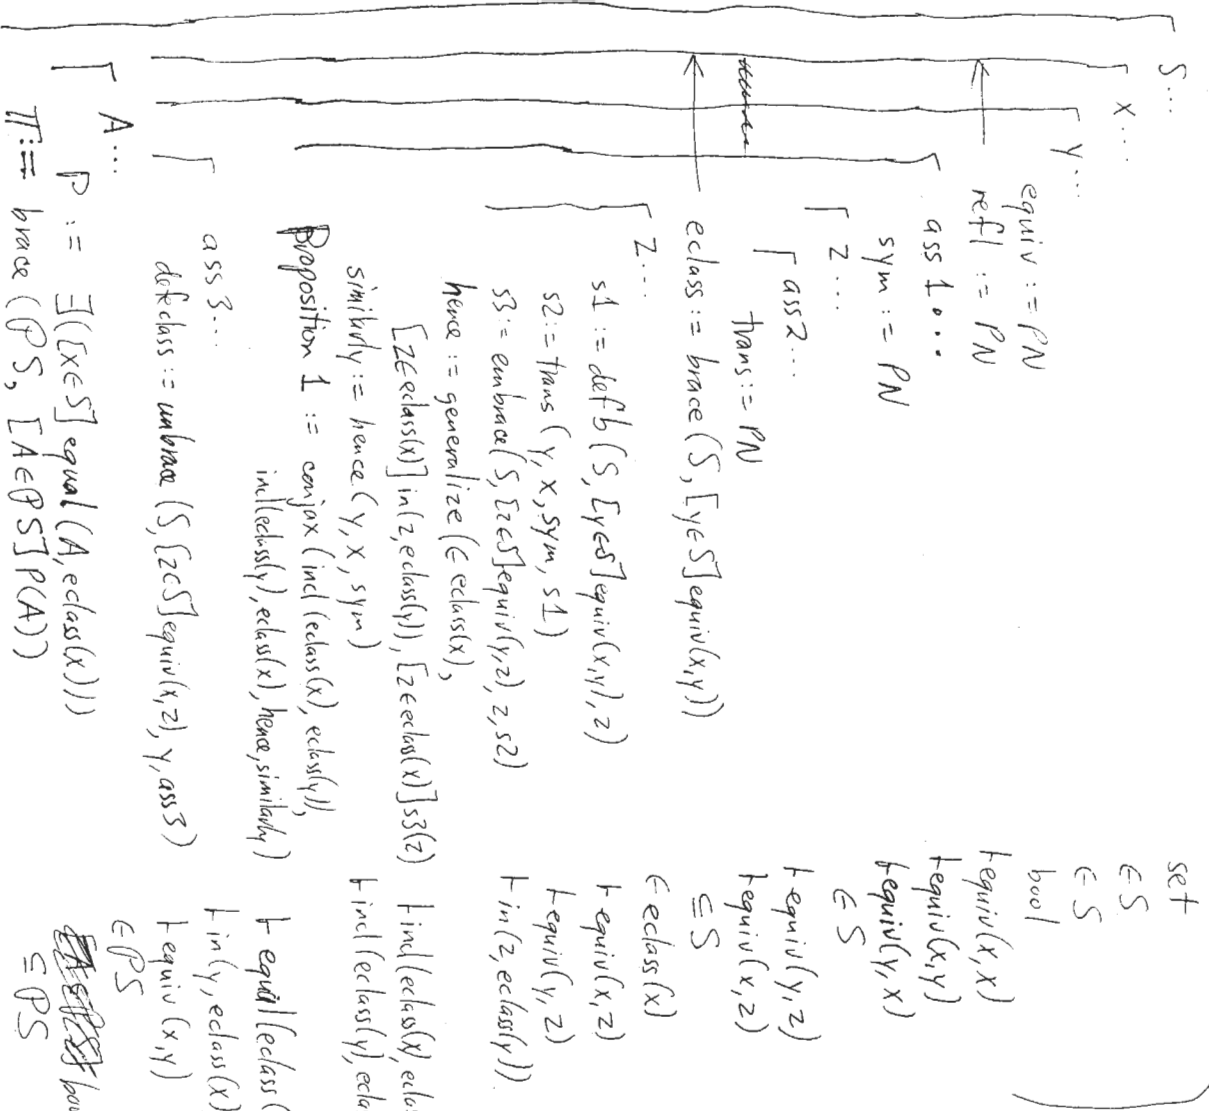 S... set
x... ∈ S
y... ∈ S
equiv := PN bool
refl := PN ⊢ equiv(x,x)
ass 1... ⊢ equiv(x,y)
sym := PN ⊢ equiv(y,x)
z... ∈ S
ass2... ⊢ equiv(y,z)
trans := PN ⊢ equiv(x,z)
eclass := brace(S,[y∈S]equiv(x,y)) ⊆ S
z... ∈ eclass(x)
s1 := defb(S,[y∈S]equiv(x,y),z) ⊢ equiv(x,z)
s2 := trans(y,x,sym,s1) ⊢ equiv(y,z)
s3 := embrace(S,[z∈S]equiv(y,z),z,s2) ⊢ in(z,eclass(y))
hence := generalize(∈ eclass(x),
[z∈eclass(x)]in(z,eclass(y)),[z∈eclass(x)]s3(z) ⊢ incl(eclass(x),eclas
similarly := hence(y,x,sym) ⊢ incl(eclass(y),ecla
Proposition 1 := conjax(incl(eclass(x),eclass(y)),
incl(eclass(y),eclass(x),hence,similarly) ⊢ equal(eclass(
ass3... ⊢ in(y,eclass(x)
defeclass := unbrace(S,[z∈S]equiv(x,z),y,ass3) ⊢ equiv(x,y)
A... ∈ PS
P := ∃([x∈S]equal(A,eclass(x))) boo
Π := brace(PS,[A∈PS]P(A)) ⊆ PS